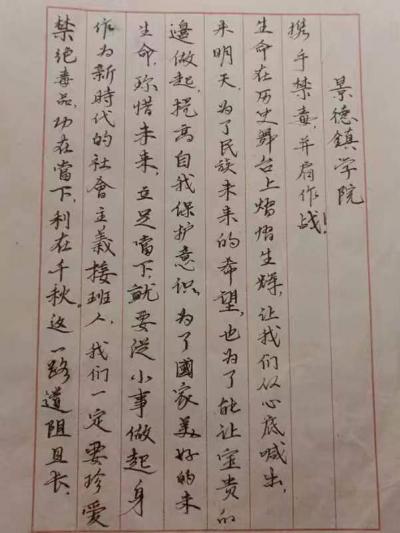 禁绝毒品,功在當下,利在千秋。这一路道阻且长,
作为新時代的社會主義接班人,我们一定要珍爱
生命,珍惜未来,立足當下,就要從小事做起身
邊做起,提高自我保护意识,为了國家美好的未
来明天,为了民族未来的希望,也为了能让宝贵的
生命在历史舞台上熠熠生辉,让我们从心底喊出,
携手禁毒,并肩作战!
景德鎮学院